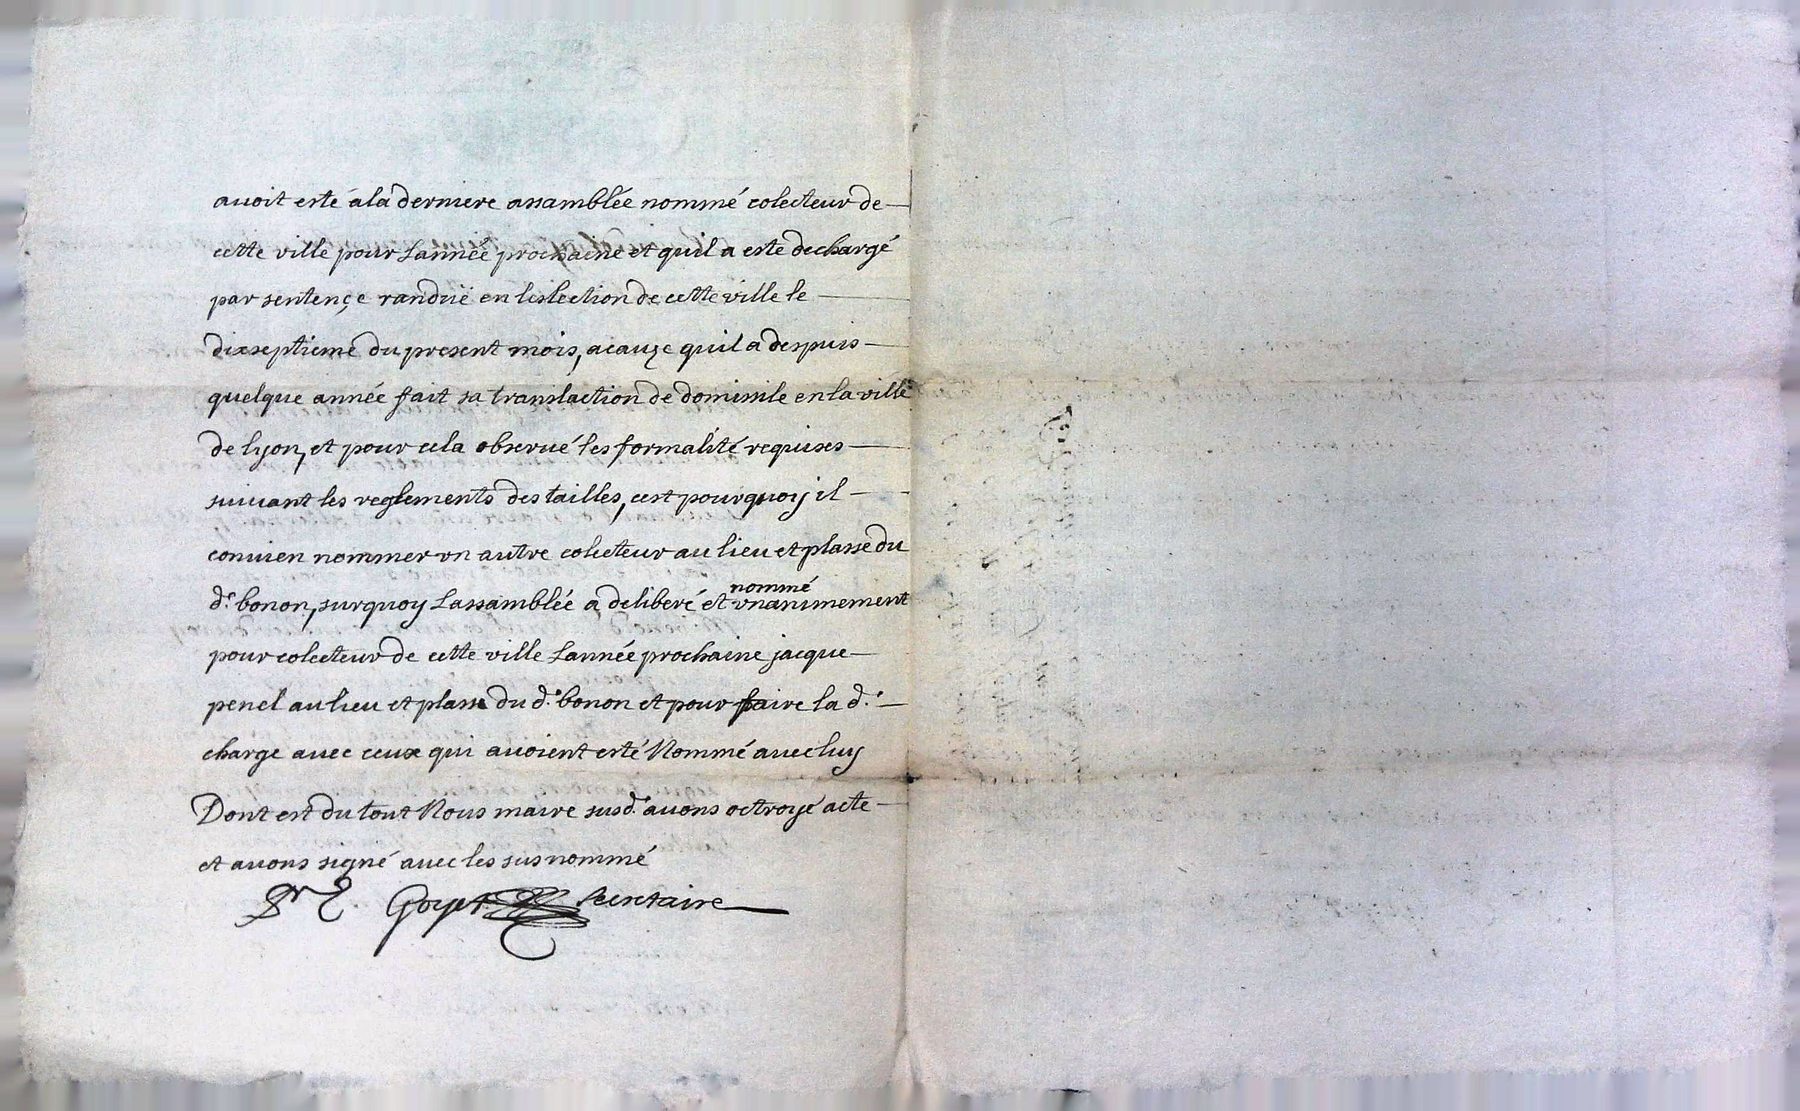 avoit esté a la derniere assamblée nommé colecteur de
cette ville pour Lannéé prochaine et quil a este dechargé
par sentençe randuë en leslection de cette ville le
dixseptieme du present mois, a cauze quil a despuis
quelque année fait sa translaction de domissile en la ville
de lyon, et pour cela observé les formalité requises
suivant les reglements des tailles, cest pourquoy il
convien nommer vn autre colecteur au lieu et plasse du
nommé
d.t bonon, surquoy Lassamblée a deliberé et vnanimement
pour colecteur de cette ville Lannéé prochaine jacque
penel au lieu et plasse du d.t bonon et pour faire la d.t
charge avec ceux qui avoient esté Nommé avec luy
Dont est du tout Nous maire susd.t avons octroyé acte
et avons signé avec les sus nommé
Goyet secretaire